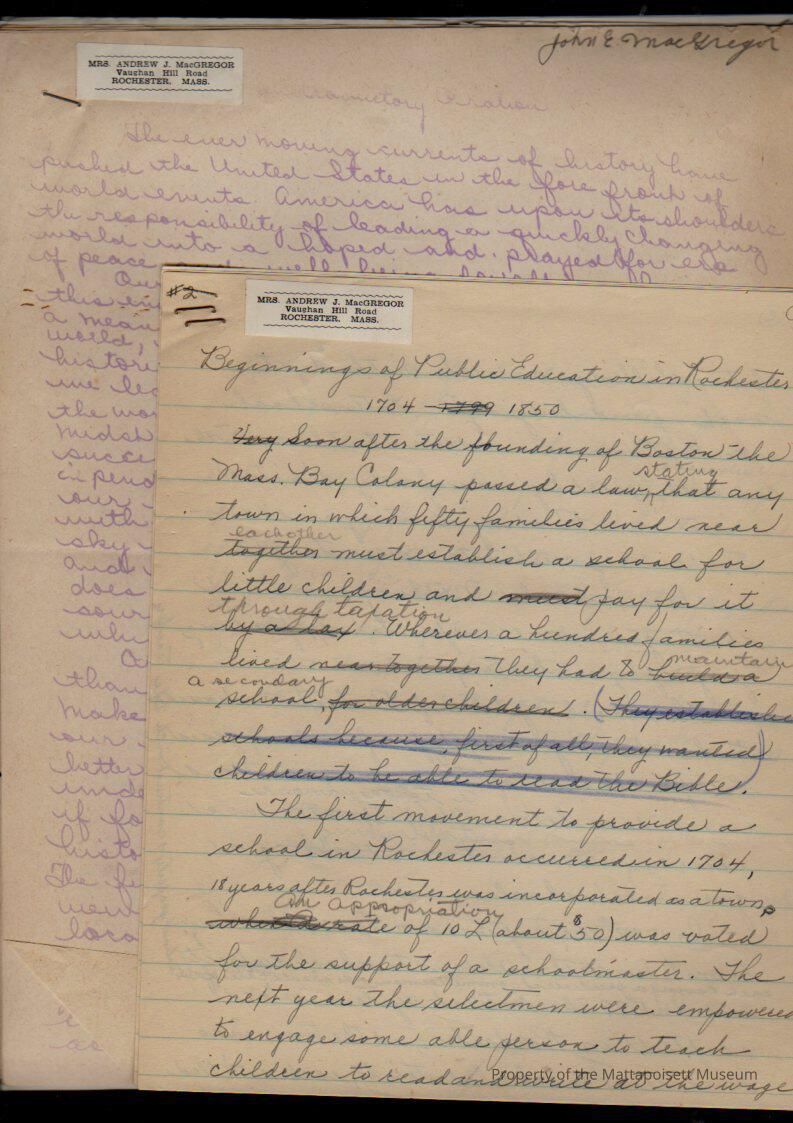 John E. MacGregor
MRS. ANDREW J. MacGREGOR
Vaughan Hill Road
ROCHESTER, MASS.
Oration
The ever moving currents of history have
pushed the United States in the fore front of
world events. America has upon its shoulders
the responsibility of leading a quickly changing
world into a hoped and prayed for era
of peace
Our
this
a mean
world,
histori
we
the wor
midsh
succe
our
with
sky
and
does
sour
than
make
our
better
unde
if fo
histo
The fu
were
loca
as
#2
MRS. ANDREW J. MacGREGOR
Vaughan Hill Road
ROCHESTER, MASS.
Beginnings of Public Education in Rochester
1704 1799 1850
Very Soon after the founding of Boston the
stating
Mass. Bay Colony passed a law, that any
town in which fifty families lived near
each other
together must establish a school for
little children and must pay for it
through taxation
by a tax. Wherever a hundred families
lived near together they had to build a
maintain
a secondary
school for older children. (They establishe
schools because, first of all, they wanted
children to be able to read the Bible.)
The first movement to provide a
school in Rochester occurred in 1704,
18 years after Rochester was incorporated as a town,
An appropriation
when a rate of 10 L (about $50) was voted
for the support of a schoolmaster. The
next year the selectmen were empowered
to engage some able person to teach
children to read and write at the wage
Property of the Mattapoisett Museum